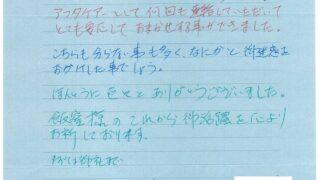 アフタケアーとして何回も連絡していただいて
とても安心しておまかせする事ができました。
こちらも分らない事も多く、なにかと御迷惑を
おかけした事でしょう。
ほんとうに色々とありがとうございました。
飯室様のこれから御活躍を心より
お祈しております。